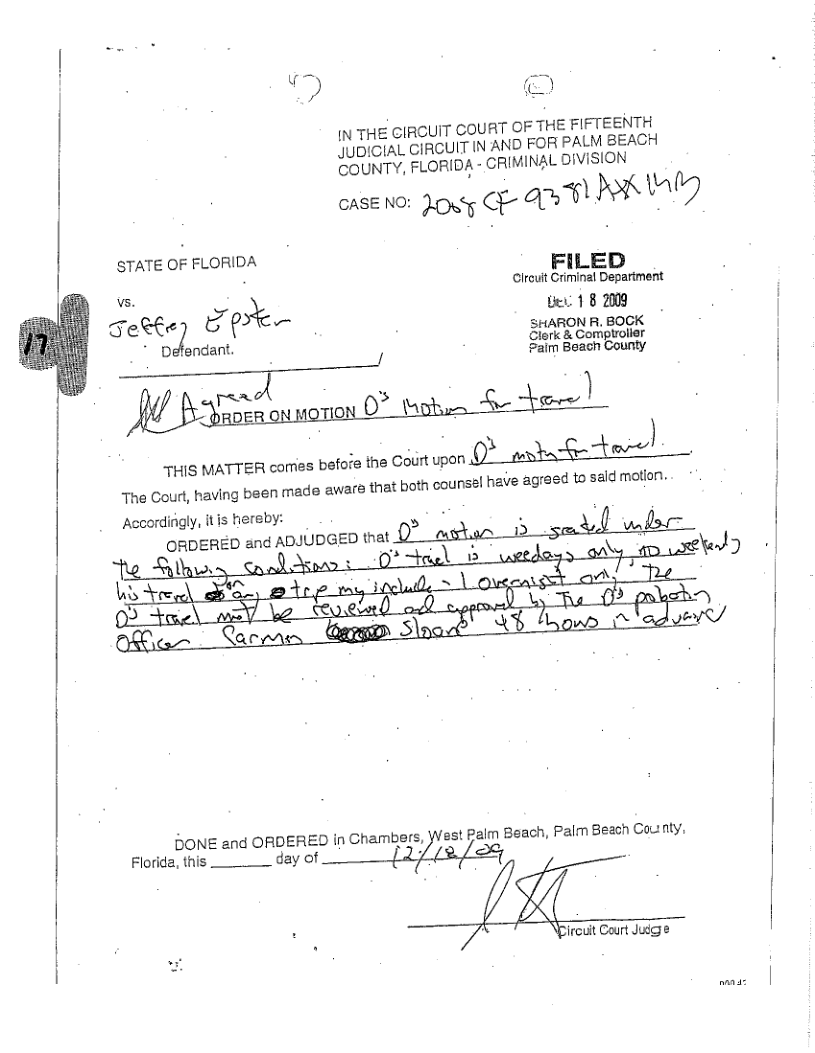 IN THE CIRCUIT COURT OF THE FIFTEENTH
JUDICIAL CIRCUIT IN AND FOR PALM BEACH
COUNTY, FLORIDA - CRIMINAL DIVISION
CASE NO: 2008 CF 9381 AXX MB
STATE OF FLORIDA
FILED
Circuit Criminal Department
DEC 18 2009
SHARON R. BOCK
Clerk & Comptroller
Palm Beach County
vs.
Jeffrey Epstein
17
Defendant.
Agreed
ORDER ON MOTION D's Motion for travel
THIS MATTER comes before the Court upon D's motion for travel.
The Court, having been made aware that both counsel have agreed to said motion.
Accordingly, it is hereby:
ORDERED and ADJUDGED that D's motion is granted under
the following conditions: D's travel is weedays only no weekends
his travel on any trip my include 1 overnight only. The
D's travel must be reviewed and approved by the D's probation
Officer Carmen Sloane 48 hours in advance
DONE and ORDERED in Chambers, West Palm Beach, Palm Beach County,
Florida, this ______ day of 12/18/09
Circuit Court Judge